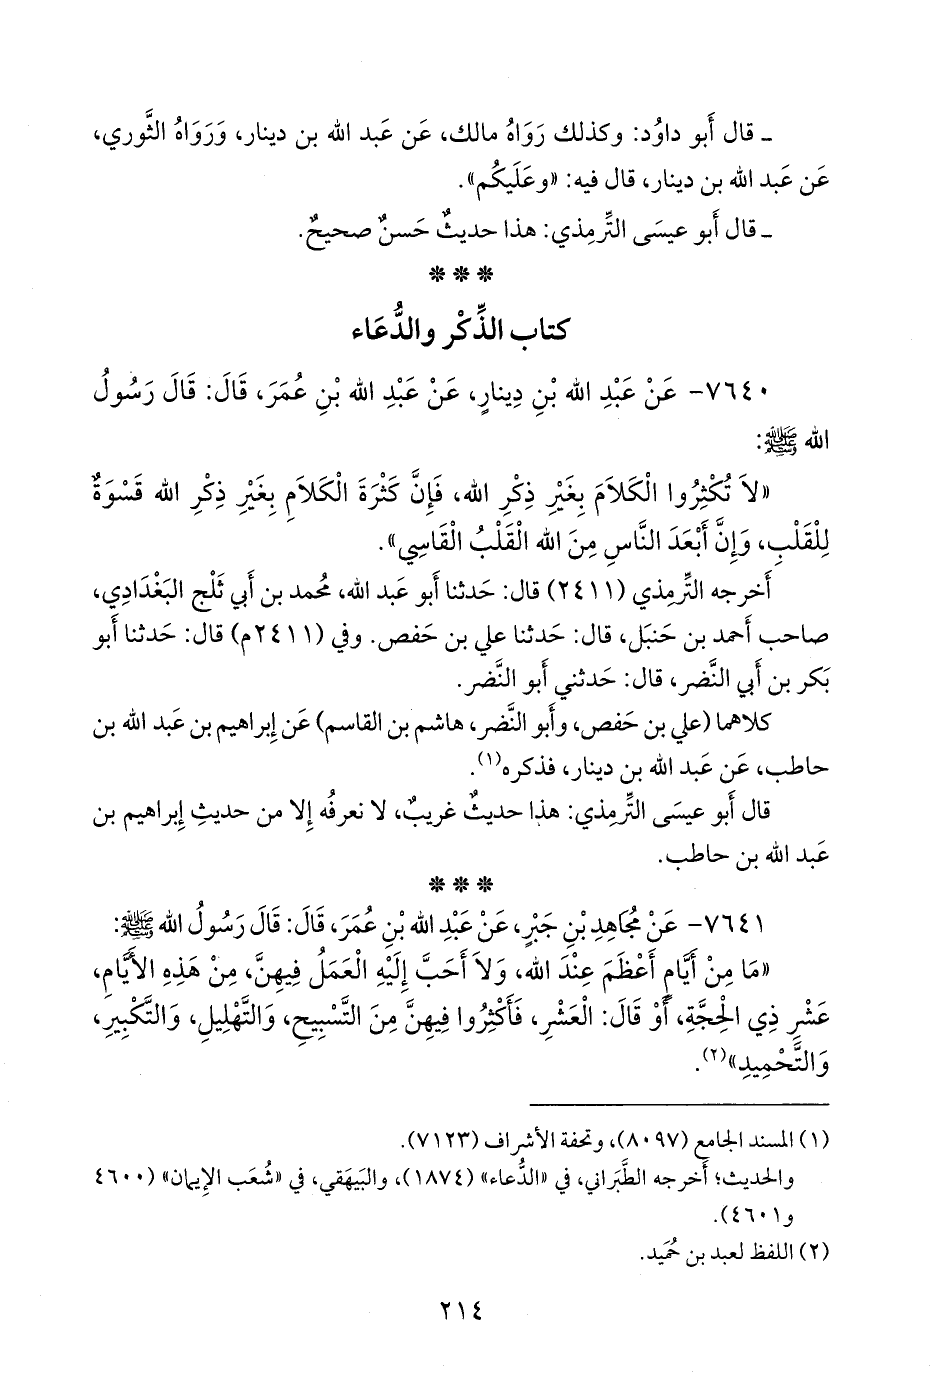 ـ قال أَبو داوُد: وكذلك رَوَاهُ مالك، عَن عَبد الله بن دينار، وَرَوَاهُ الثَّوري،
عَن عَبد الله بن دينار، قال فيه: «وعَلَيكُم».
ـ قال أَبو عيسَى التِّرمِذي: هذا حديثٌ حَسنٌ صحيحٌ.
* * *
كتاب الذِّكْر والدُّعَاء
٧٦٤٠- عَنْ عَبْدِ الله بْنِ دِينارٍ، عَنْ عَبْدِ الله بْنِ عُمَرَ، قَالَ: قَالَ رَسُولُ
الله ﷺ:
«لاَ تُكْثِرُوا الْكَلاَمَ بِغَيْرِ ذِكْرِ الله، فَإِنَّ كَثْرَةَ الْكَلاَمِ بِغَيْرِ ذِكْرِ الله قَسْوَةٌ
لِلْقَلْبِ، وَإِنَّ أَبْعَدَ النَّاسِ مِنَ الله الْقَلْبُ الْقَاسِي».
أَخرجه التِّرمِذي (٢٤١١) قال: حَدثنا أَبو عَبد الله، مُحمد بن أَبي ثَلْج البَغْدَادِي،
صاحب أَحمد بن حَنبَل، قال: حَدثنا علي بن حَفص. وفي (٢٤١١م) قال: حَدثنا أَبو
بَكر بن أَبي النَّضر، قال: حَدثني أَبو النَّضر.
كلاهما (علي بن حَفص، وأَبو النَّضر، هاشم بن القاسم) عَن إِبراهيم بن عَبد الله بن
حاطب، عَن عَبد الله بن دينار، فذكره(١).
قال أَبو عيسَى التِّرمِذي: هذا حديثٌ غريبٌ، لا نعرفُه إِلا من حديثِ إِبراهيم بن
عَبد الله بن حاطب.
* * *
٧٦٤١- عَنْ مُجَاهِدِ بْنِ جَبْرٍ، عَنْ عَبْدِ الله بْنِ عُمَرَ، قَالَ: قَالَ رَسُولُ الله ﷺ:
«مَا مِنْ أَيَّامٍ أَعْظَمَ عِنْدَ الله، وَلاَ أَحَبَّ إِلَيْهِ الْعَمَلُ فِيهِنَّ، مِنْ هَذِهِ الأَيَّامِ،
عَشْرِ ذِي الْحِجَّةِ، أَوْ قَالَ: الْعَشْرِ، فَأَكْثِرُوا فِيهِنَّ مِنَ التَّسْبِيحِ، وَالتَّهْلِيلِ، وَالتَّكْبِيرِ،
وَالتَّحْمِيدِ»(٢).
(١) المسند الجامع (٨٠٩٧)، وتحفة الأشراف (٧١٢٣).
والحديث؛ أَخرجه الطَّبَراني، في «الدُّعاء» (١٨٧٤)، والبَيهَقي، في «شُعَب الإِيمان» (٤٦٠٠
و٤٦٠١).
(٢) اللفظ لعبد بن حُمَيد.
٢١٤